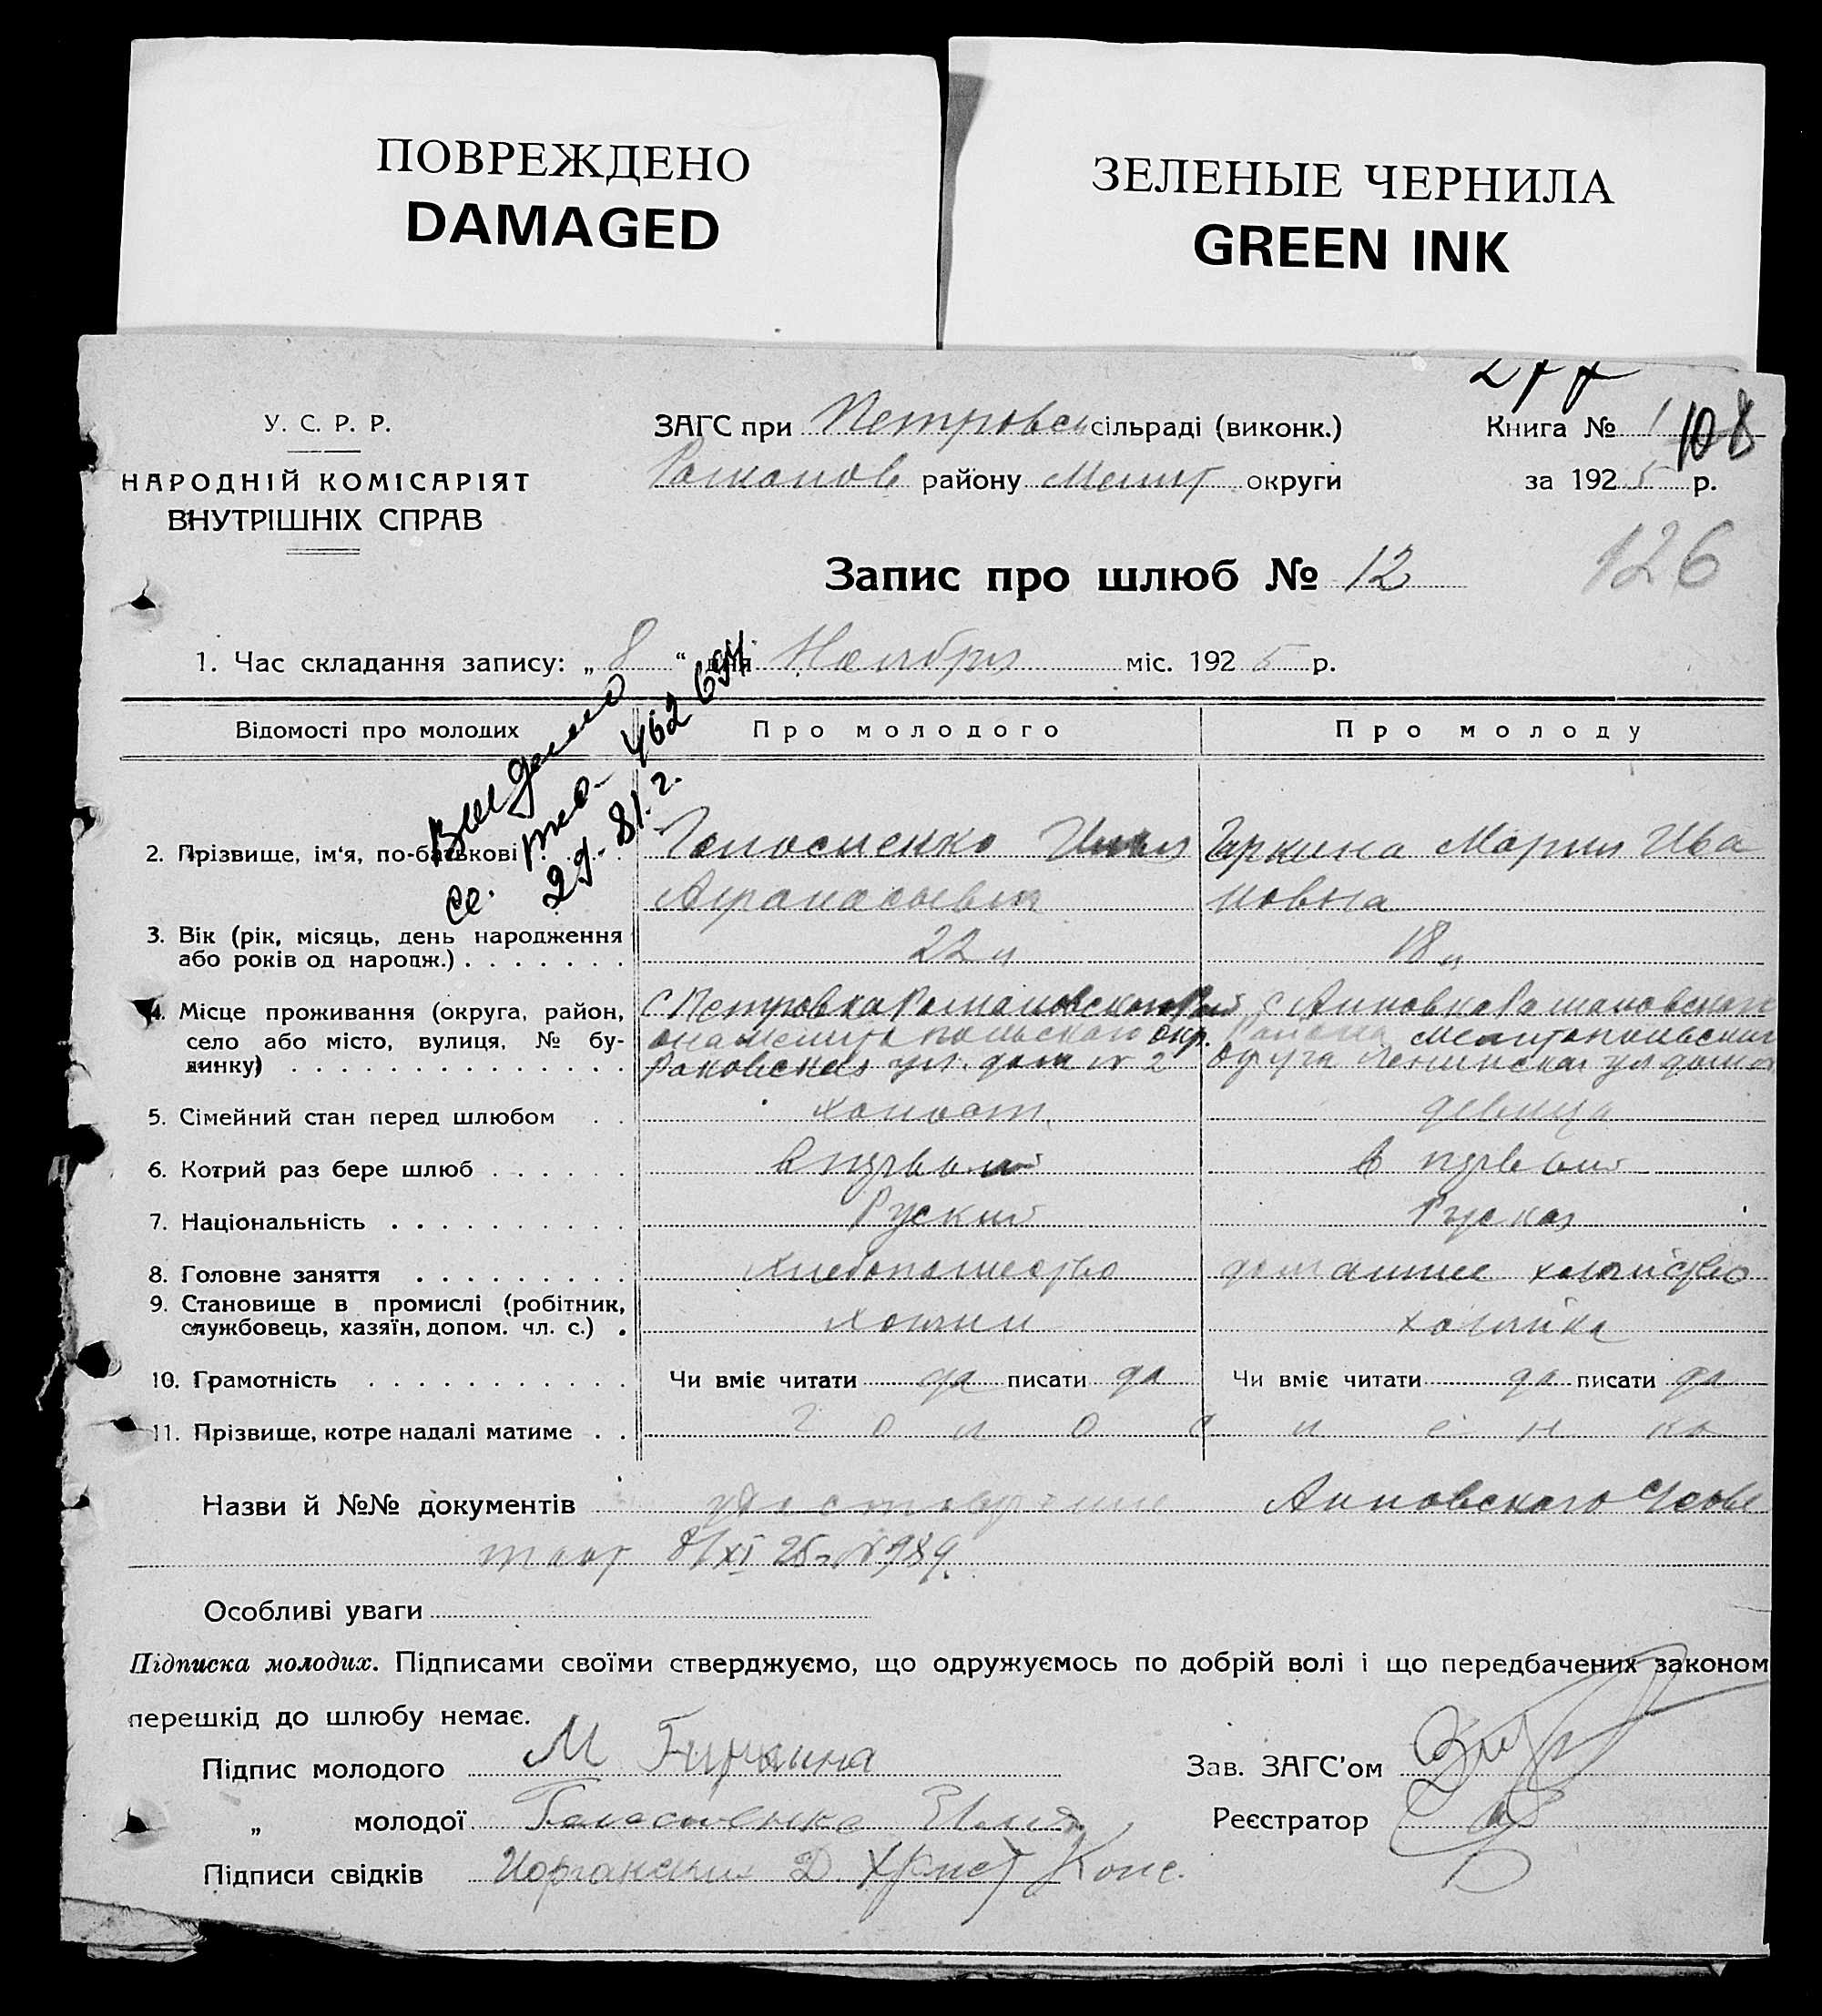 ПОВРЕЖДЕНО
DAMAGED
ЗЕЛЕНЫЕ ЧЕРНИЛА
GREEN INK
277
У. С. Р. Р.
НАРОДНІЙ КОМІСАРІЯТ
ВНУТРІШНІХ СПРАВ
ЗАГС при Петровск сільраді (виконк.)
Романов району Мелит округи
Книга № 1 108
за 1925 р.
126
Запис про шлюб № 12
1. Час складання запису: „ 8 “ дня Ноября міс. 1925 р.
Видано
св. 462694
29. 81. г.
Відомості про молодих Про молодого Про молоду
2. Прізвище, ім'я, по-батькові . . . Голосненко Илья Гиркина Мария Ива
Афанасьевич новна
3. Вік (рік, місяць, день народження
або років од народж.) . . . . . . . 22 л 18 л
4. Місце проживання (округа, район, с Петровка Романовского с Анновка Романовского
село або місто, вулиця, № бу- Мелитопольского окр. Района Мелитопольского
динку) . . . . . . . . . . . . . . Раковская ул. дом № 2 округа Ленинская ул дом
5. Сімейний стан перед шлюбом . . холост девица
6. Котрий раз бере шлюб . . . . . . в первый в первый
7. Національність . . . . . . . . . . Руский Руская
8. Головне заняття . . . . . . . . . хлебопашество домашнее хозяйство
9. Становище в промислі (робітник,
службовець, хазяїн, допом. чл. с.) . хозяин хозяйка
10. Грамотність . . . . . . . . . . . Чи вміє читати да писати да Чи вміє читати да писати да
11. Прізвище, котре надалі матиме . . Голосненко
Назви й №№ документів удостоверение Анновского
8/XI 25 г № 989.
Особливі уваги
Підписка молодих. Підписами своїми стверджуємо, що одружуємось по добрій волі і що передбачених законом
перешкід до шлюбу немає.
Підпис молодого М Гиркина Зав. ЗАГС'ом
„ молодої Голосненко Илья Реєстратор
Підписи свідків